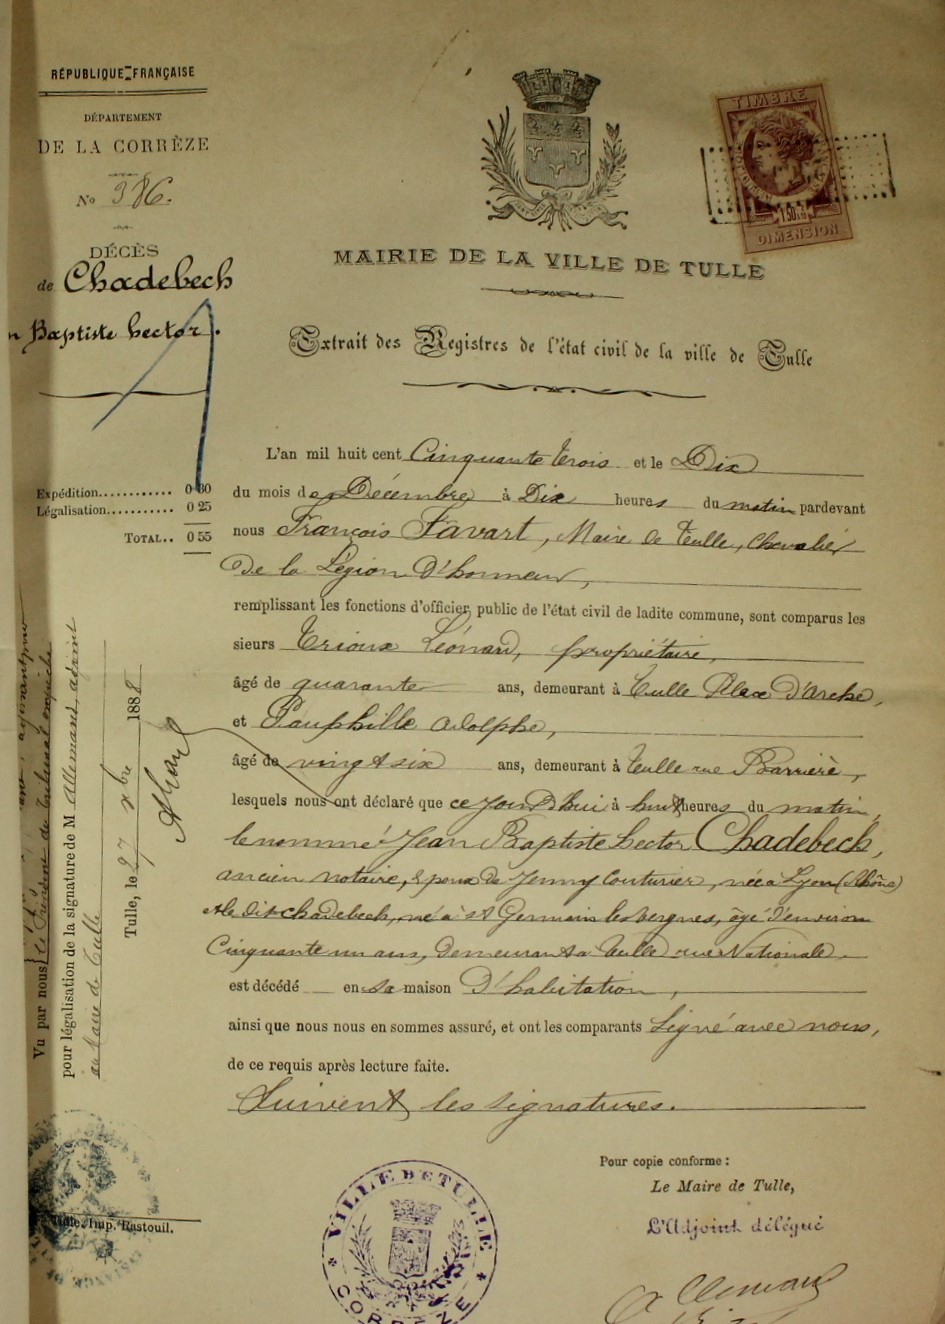 RÉPUBLIQUE FRANÇAISE
DÉPARTEMENT
DE LA CORRÈZE
No 386.
DÉCÈS
de Chadebech
Baptiste hector.
Expédition............ 0 30
Légalisation........... 0 25
TOTAL.. 0 55
TIMBRE
DIMENSION
MAIRIE DE LA VILLE DE TULLE
Extrait des Registres de l'état civil de la ville de Tulle
L'an mil huit cent Cinquante trois et le Dix
du mois de Décembre à Dix heures du matin pardevant
nous François Favart, Maire de Tulle, chevalier
De la Légion D'honneur,
remplissant les fonctions d'officier public de l'état civil de ladite commune, sont comparus les
sieurs Trioux Léonard, propriétaire,
âgé de quarante ans, demeurant à Tulle Place D'arche,
et Pauphille adolphe,
âgé de vingt six ans, demeurant à Tulle rue Barrière,
lesquels nous ont déclaré que ce jour D'hui à huit heures du matin
le nommé Jean Baptiste hector Chadebech,
ancien notaire, époux de Jenny Couturier, née à Lyon (Rhône)
et le dit chadebech, né à st Germain les vergnes, âgé d'environ
Cinquante un ans, Demeurant à Tulle rue Nationale
est décédé en sa maison D'habitation,
ainsi que nous nous en sommes assuré, et ont les comparants signé avec nous,
de ce requis après lecture faite.
Suivent les signatures.
Vu par nous le Président du tribunal
pour légalisation de la signature de M Allemand, adjoint
au Maire de Tulle
Tulle, le 27 xbre 1888
Tulle, Imp. Rastouil.
VILLE DE TULLE
CORRÈZE
Pour copie conforme :
Le Maire de Tulle,
L'Adjoint délégué